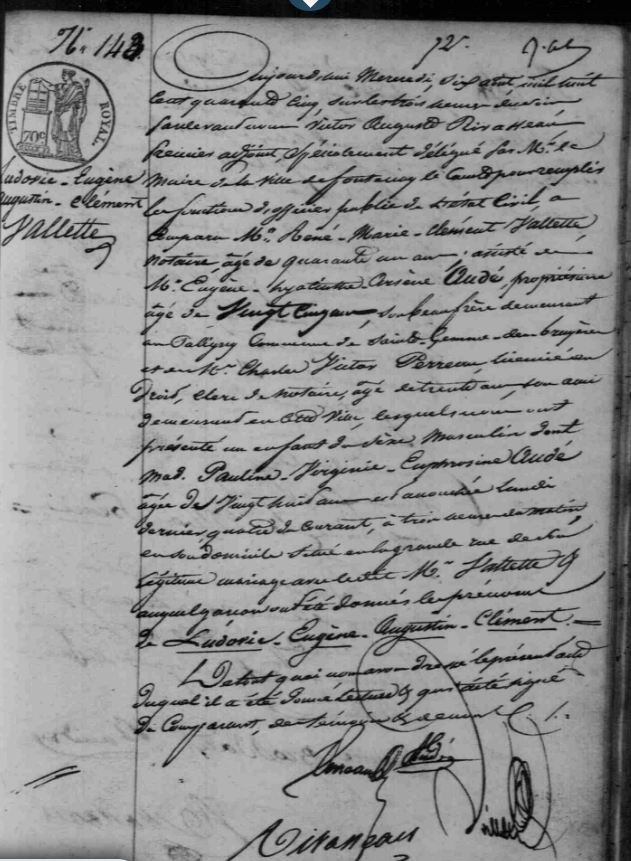 N.° 143.
72.
TIMBRE ROYAL
70c
Ludovic-Eugène
Augustin-Clément
Vallette
Aujourd'hui Mercredi, six août mil huit
cent quarante cinq, sur les trois heures du soir
pardevant nous Victor Auguste
premier adjoint, spécialement délégué par Mr. le
Maire de la ville de fontenay le Comte pour remplir
les fonctions d'officier public de l'état Civil, a
Comparu Mr. René-Marie-Clément Vallette
notaire, âgé de quarante un ans; assisté de
Mr. Eugène-hyacinthe Arsène Audé, propriétaire
âgé de Vingt Cinq ans, son beau frère demeurant
Commune de Sainte-Gemme-des bruyères
et de Mr. Charles Victor Perreau, licencié en
Droit, Clerc de Notaire, âgé de trente ans, son ami
demeurant en Cette Ville, lesquels nous ont
présenté un enfant du sexe Masculin dont
mad. Pauline-Virginie-Euphrosine Audé
âgée de Vingt huit ans est accouchée lundi
dernier quatre du courant, à trois heures du matin,
en son domicile situé en la grande rue, de son
légitime mariage avec le dit Mr. Vallette &
auquel garçon ont été donnés les prénoms
de Ludovic-Eugène-Augustin-Clément.
De tout quoi nous avons dressé le présent acte
duquel il a été donné lecture & qui a été signé
du Comparant, des témoins & de nous
Audé